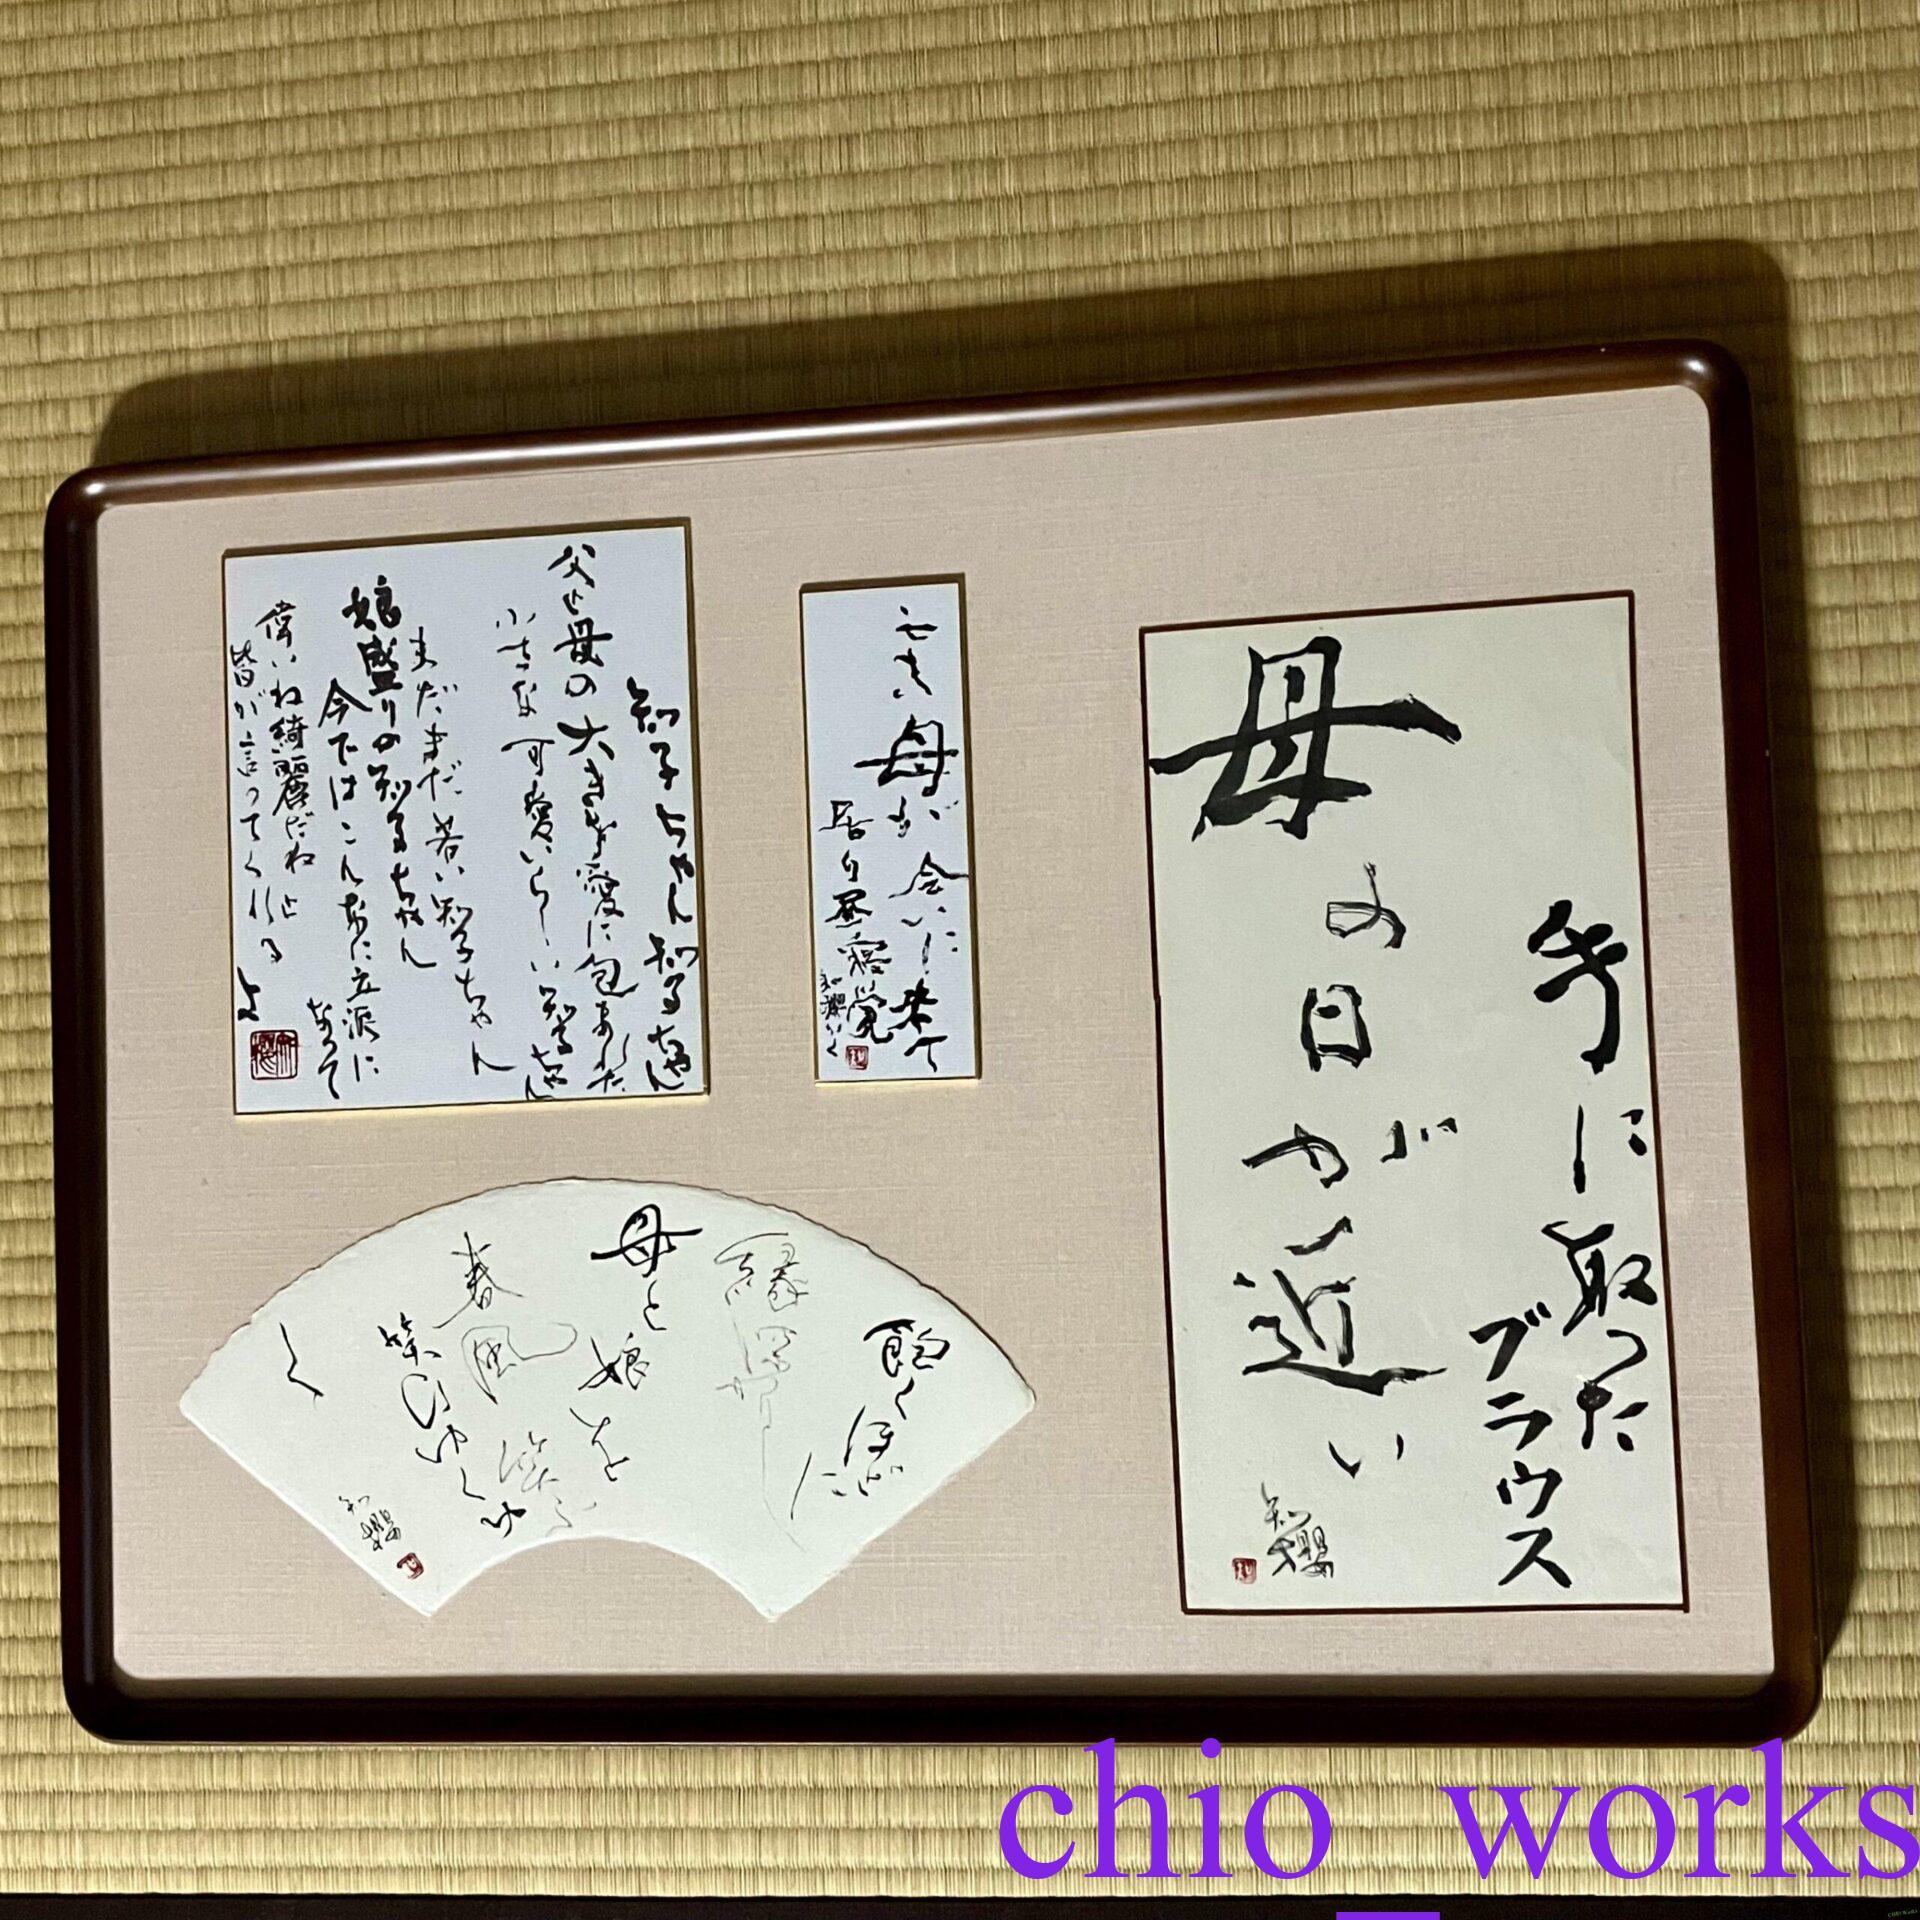 手に取った
ブラウス
母の日が
近い
知櫻
亡き母が会いに来て
居り昼寝覚
知櫻かく
知子ちゃん知子ちゃん
父と母の大きな愛に包まれた
小さな可愛いらしい知子ちゃん
まだまだ若い知子ちゃん
娘盛りの知子ちゃん
今ではこんなに立派に
なって
偉いね綺麗だねと
皆が言ってくれる
母と娘を
春風
笑ひゆく
知櫻
chio_works